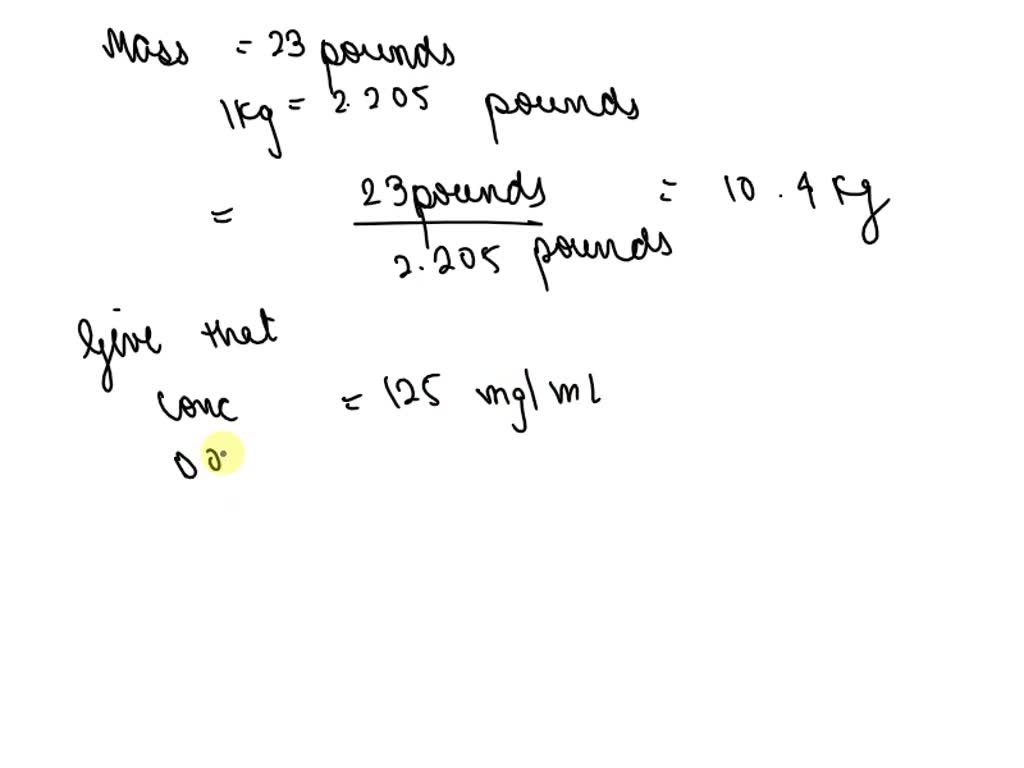 Mass = 23 pounds
1Kg = 2.205 pounds
= 23 pounds / 2.205 pounds = 10.4 Kg
Give that
Conc = 125 mg/ml